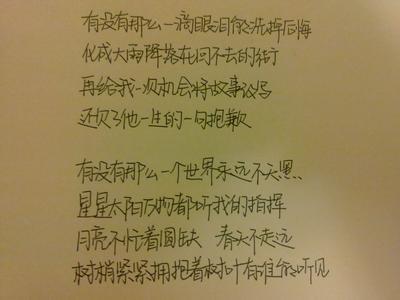 有没有那么一滴眼泪能洗掉后悔
化成大雨降落在回不去的街
再给我一次机会将故事改写
还欠了他一生的一句抱歉
有没有那么一个世界永远不天黑
星星太阳万物都听我的指挥
月亮不忙着圆缺 春天不走远
树梢紧紧拥抱着树叶有谁能听见